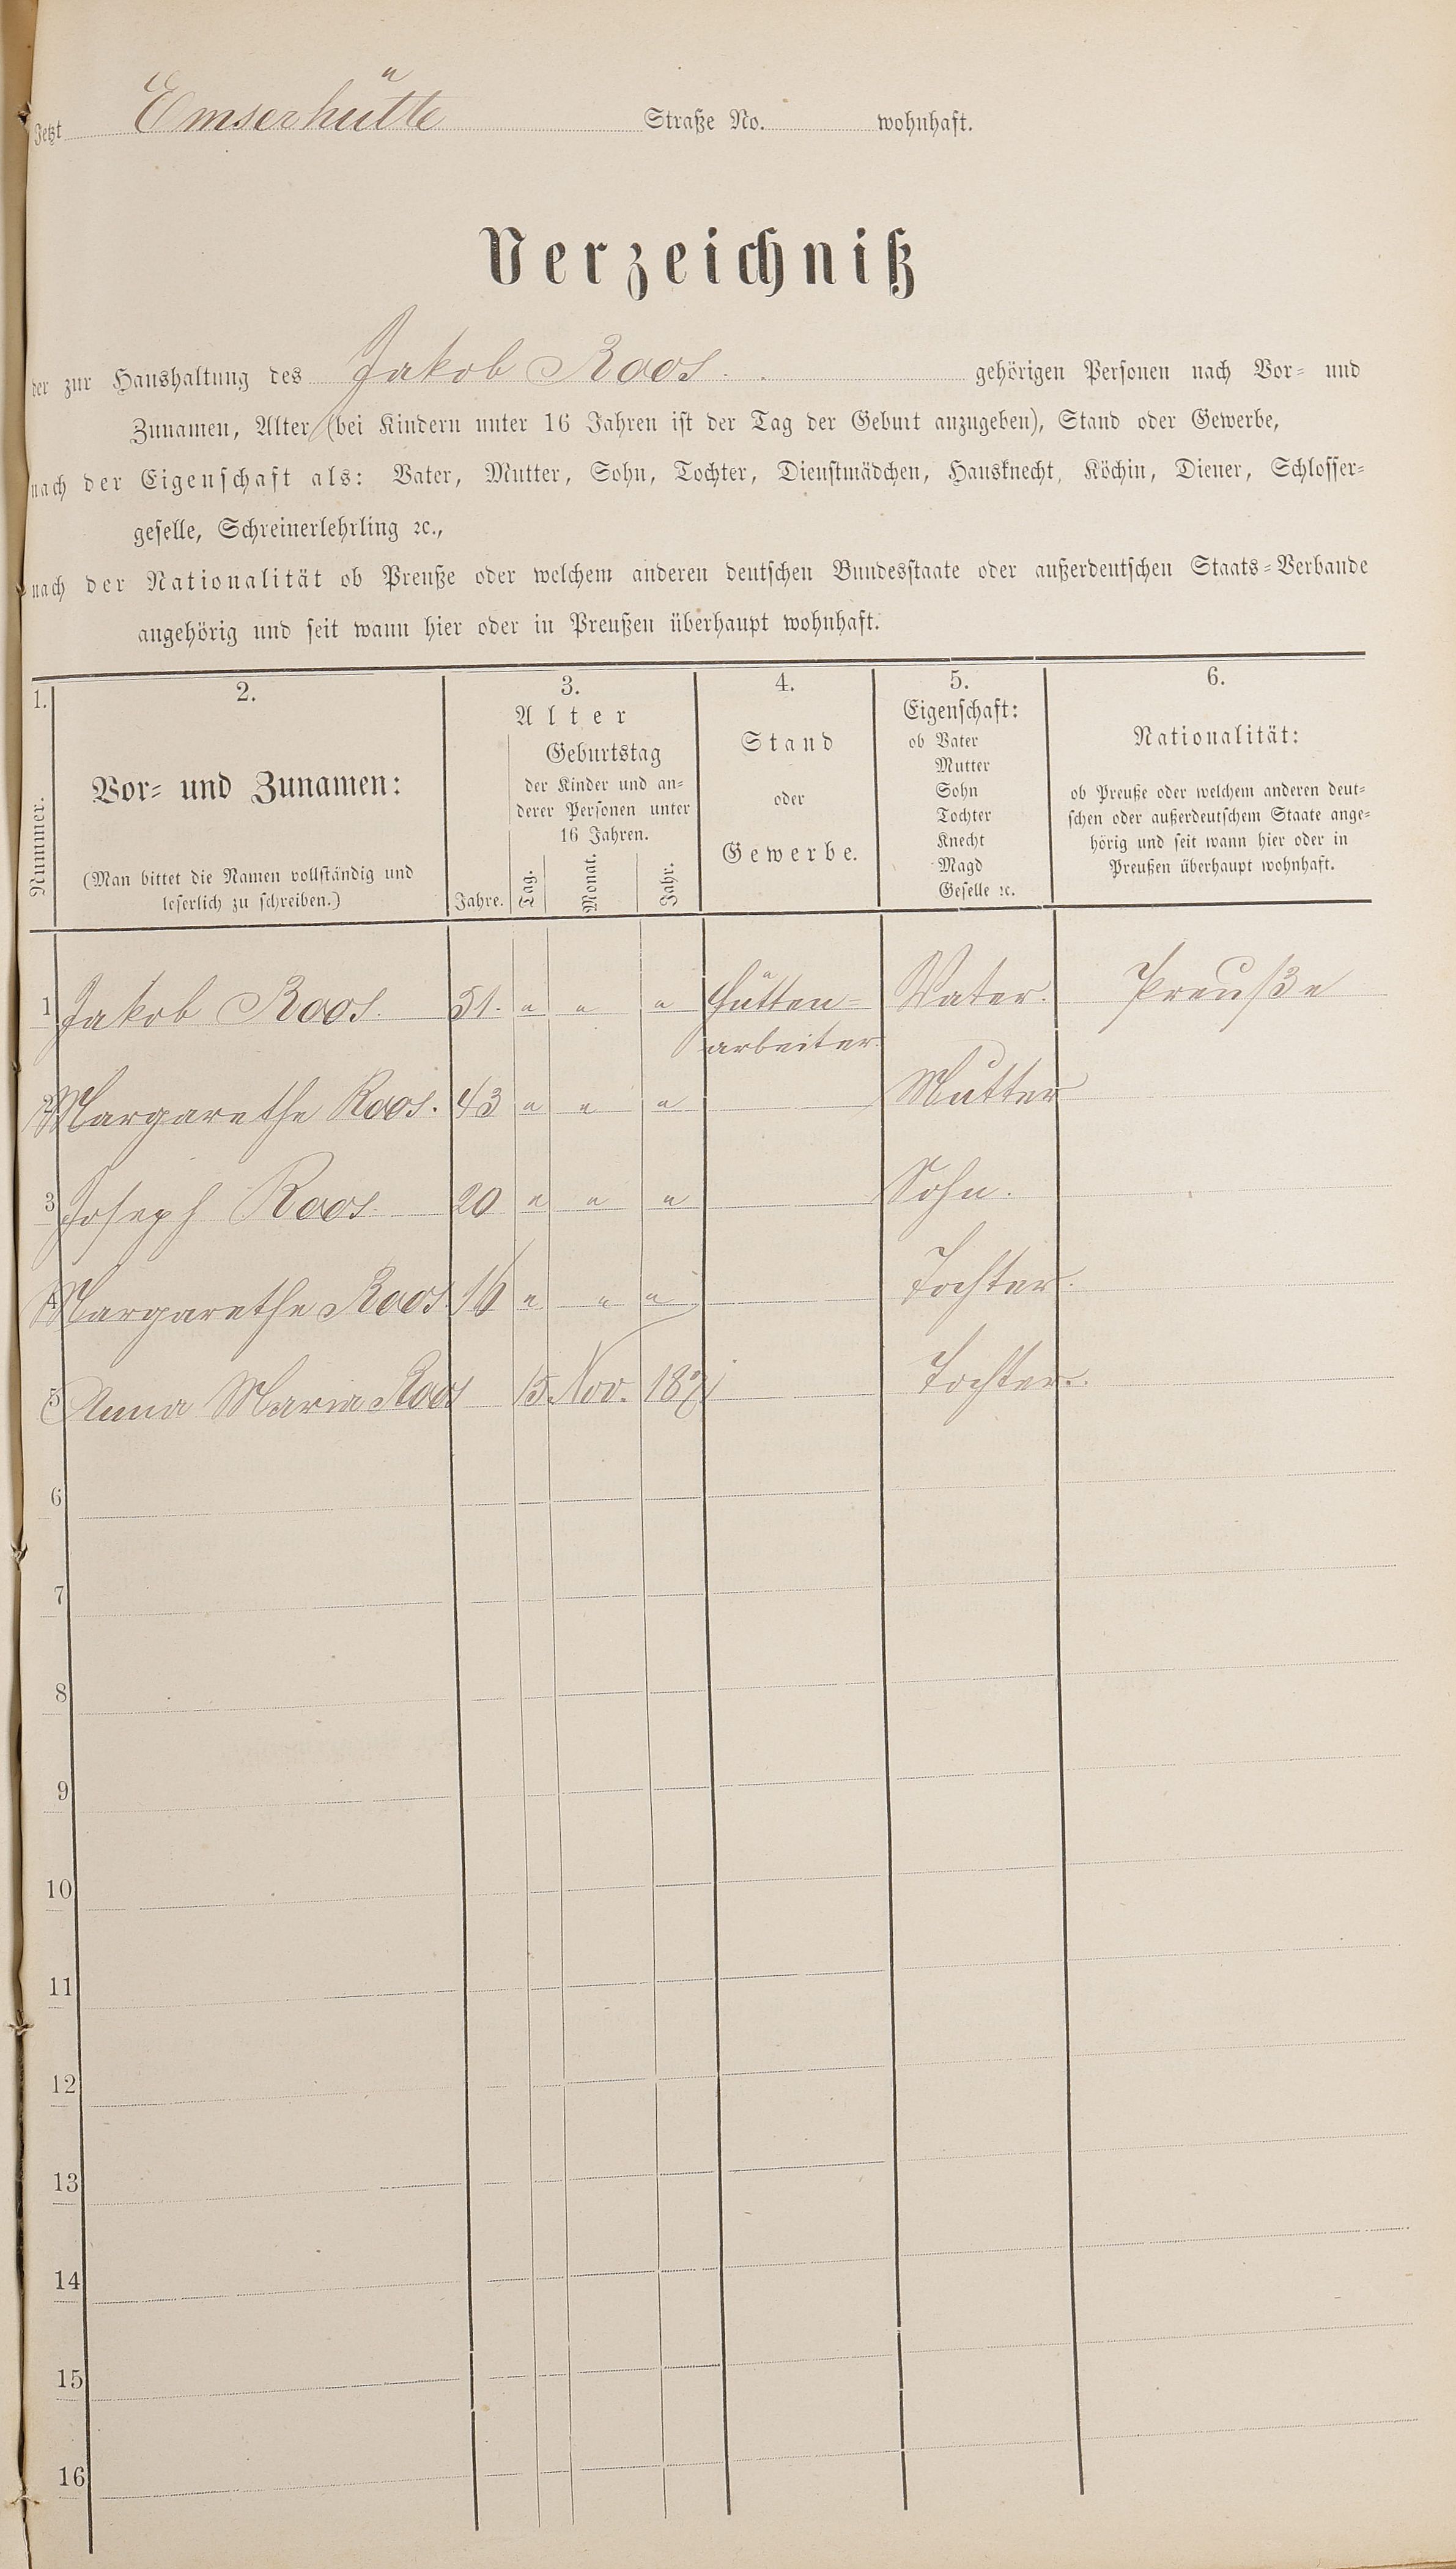 Jetzt Emserhütte Straße No. wohnhaft.
Verzeichniß
der zur Haushaltung des Jakob Roos. gehörigen Personen nach Vor- und
Zunamen, Alter (bei Kindern unter 16 Jahren ist der Tag der Geburt anzugeben), Stand oder Gewerbe,
nach der Eigenschaft als: Vater, Mutter, Sohn, Tochter, Dienstmädchen, Hausknecht, Köchin, Diener, Schlosser-
geselle, Schreinerlehrling ꝛc.,
nach der Nationalität ob Preuße oder welchem anderen deutschen Bundesstaate oder außerdeutschen Staats-Verbande
angehörig und seit wann hier oder in Preußen überhaupt wohnhaft.
1. 2. 3. 4. 5. 6.
Nummer.
Vor- und Zunamen:
(Man bittet die Namen vollständig und
leserlich zu schreiben.)
Alter
Jahre.
Geburtstag
der Kinder und an-
derer Personen unter
16 Jahren.
Tag. Monat. Jahr.
Stand
oder
Gewerbe.
Eigenschaft:
ob Vater
Mutter
Sohn
Tochter
Knecht
Magd
Geselle ꝛc.
Nationalität:
ob Preuße oder welchem anderen deut-
schen oder außerdeutschem Staate ange-
hörig und seit wann hier oder in
Preußen überhaupt wohnhaft.
1 Jakob Roos. 51. " " " Hütten= Vater. Preuße
arbeiter.
2 Margarethe Roos. 43 " " " Mutter
3 Joseph Roos. 20 " " " Sohn.
4 Margarethe Roos. 16 " " " Tochter.
5 Anna Maria Roos 15. Nov. Tochter.
6
7
8
9
10
11
12
13
14
15
16